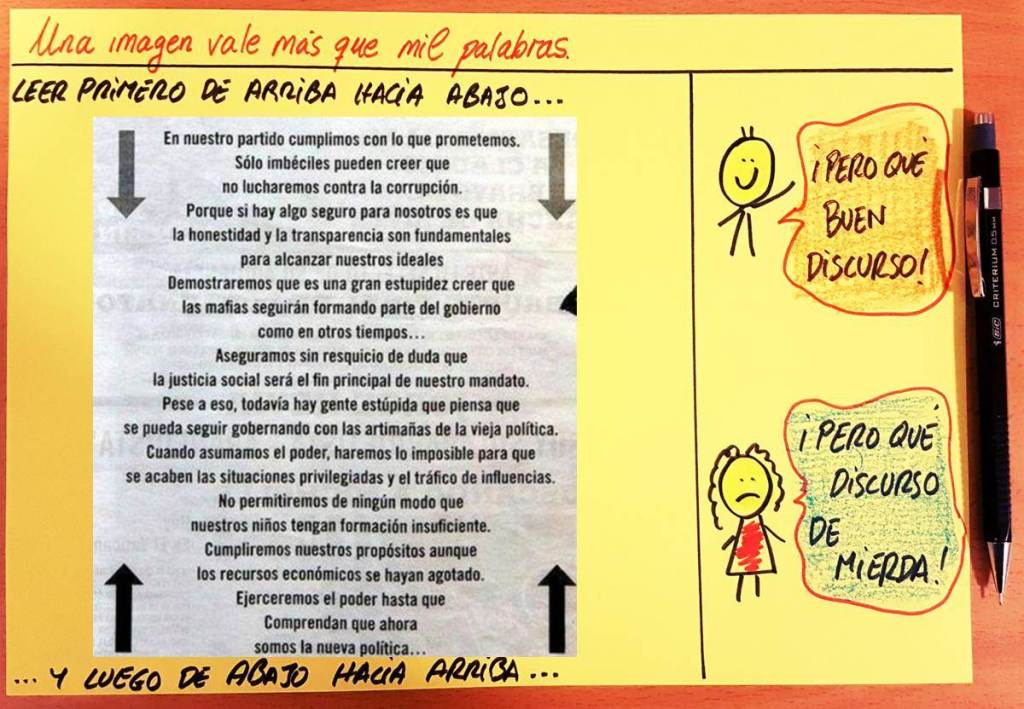 Una imagen vale más que mil palabras.
LEER PRIMERO DE ARRIBA HACIA ABAJO...
En nuestro partido cumplimos con lo que prometemos.
Sólo imbéciles pueden creer que
no lucharemos contra la corrupción.
Porque si hay algo seguro para nosotros es que
la honestidad y la transparencia son fundamentales
para alcanzar nuestros ideales
Demostraremos que es una gran estupidez creer que
las mafias seguirán formando parte del gobierno
como en otros tiempos...
Aseguramos sin resquicio de duda que
la justicia social será el fin principal de nuestro mandato.
Pese a eso, todavía hay gente estúpida que piensa que
se pueda seguir gobernando con las artimañas de la vieja política.
Cuando asumamos el poder, haremos lo imposible para que
se acaben las situaciones privilegiadas y el tráfico de influencias.
No permitiremos de ningún modo que
nuestros niños tengan formación insuficiente.
Cumpliremos nuestros propósitos aunque
los recursos económicos se hayan agotado.
Ejerceremos el poder hasta que
Comprendan que ahora
somos la nueva política...
... Y LUEGO DE ABAJO HACIA ARRIBA...
¡PERO QUÉ
BUEN
DISCURSO!
¡PERO QUÉ
DISCURSO
DE
MIERDA!
BIC CRITERIUM 0.5 mm